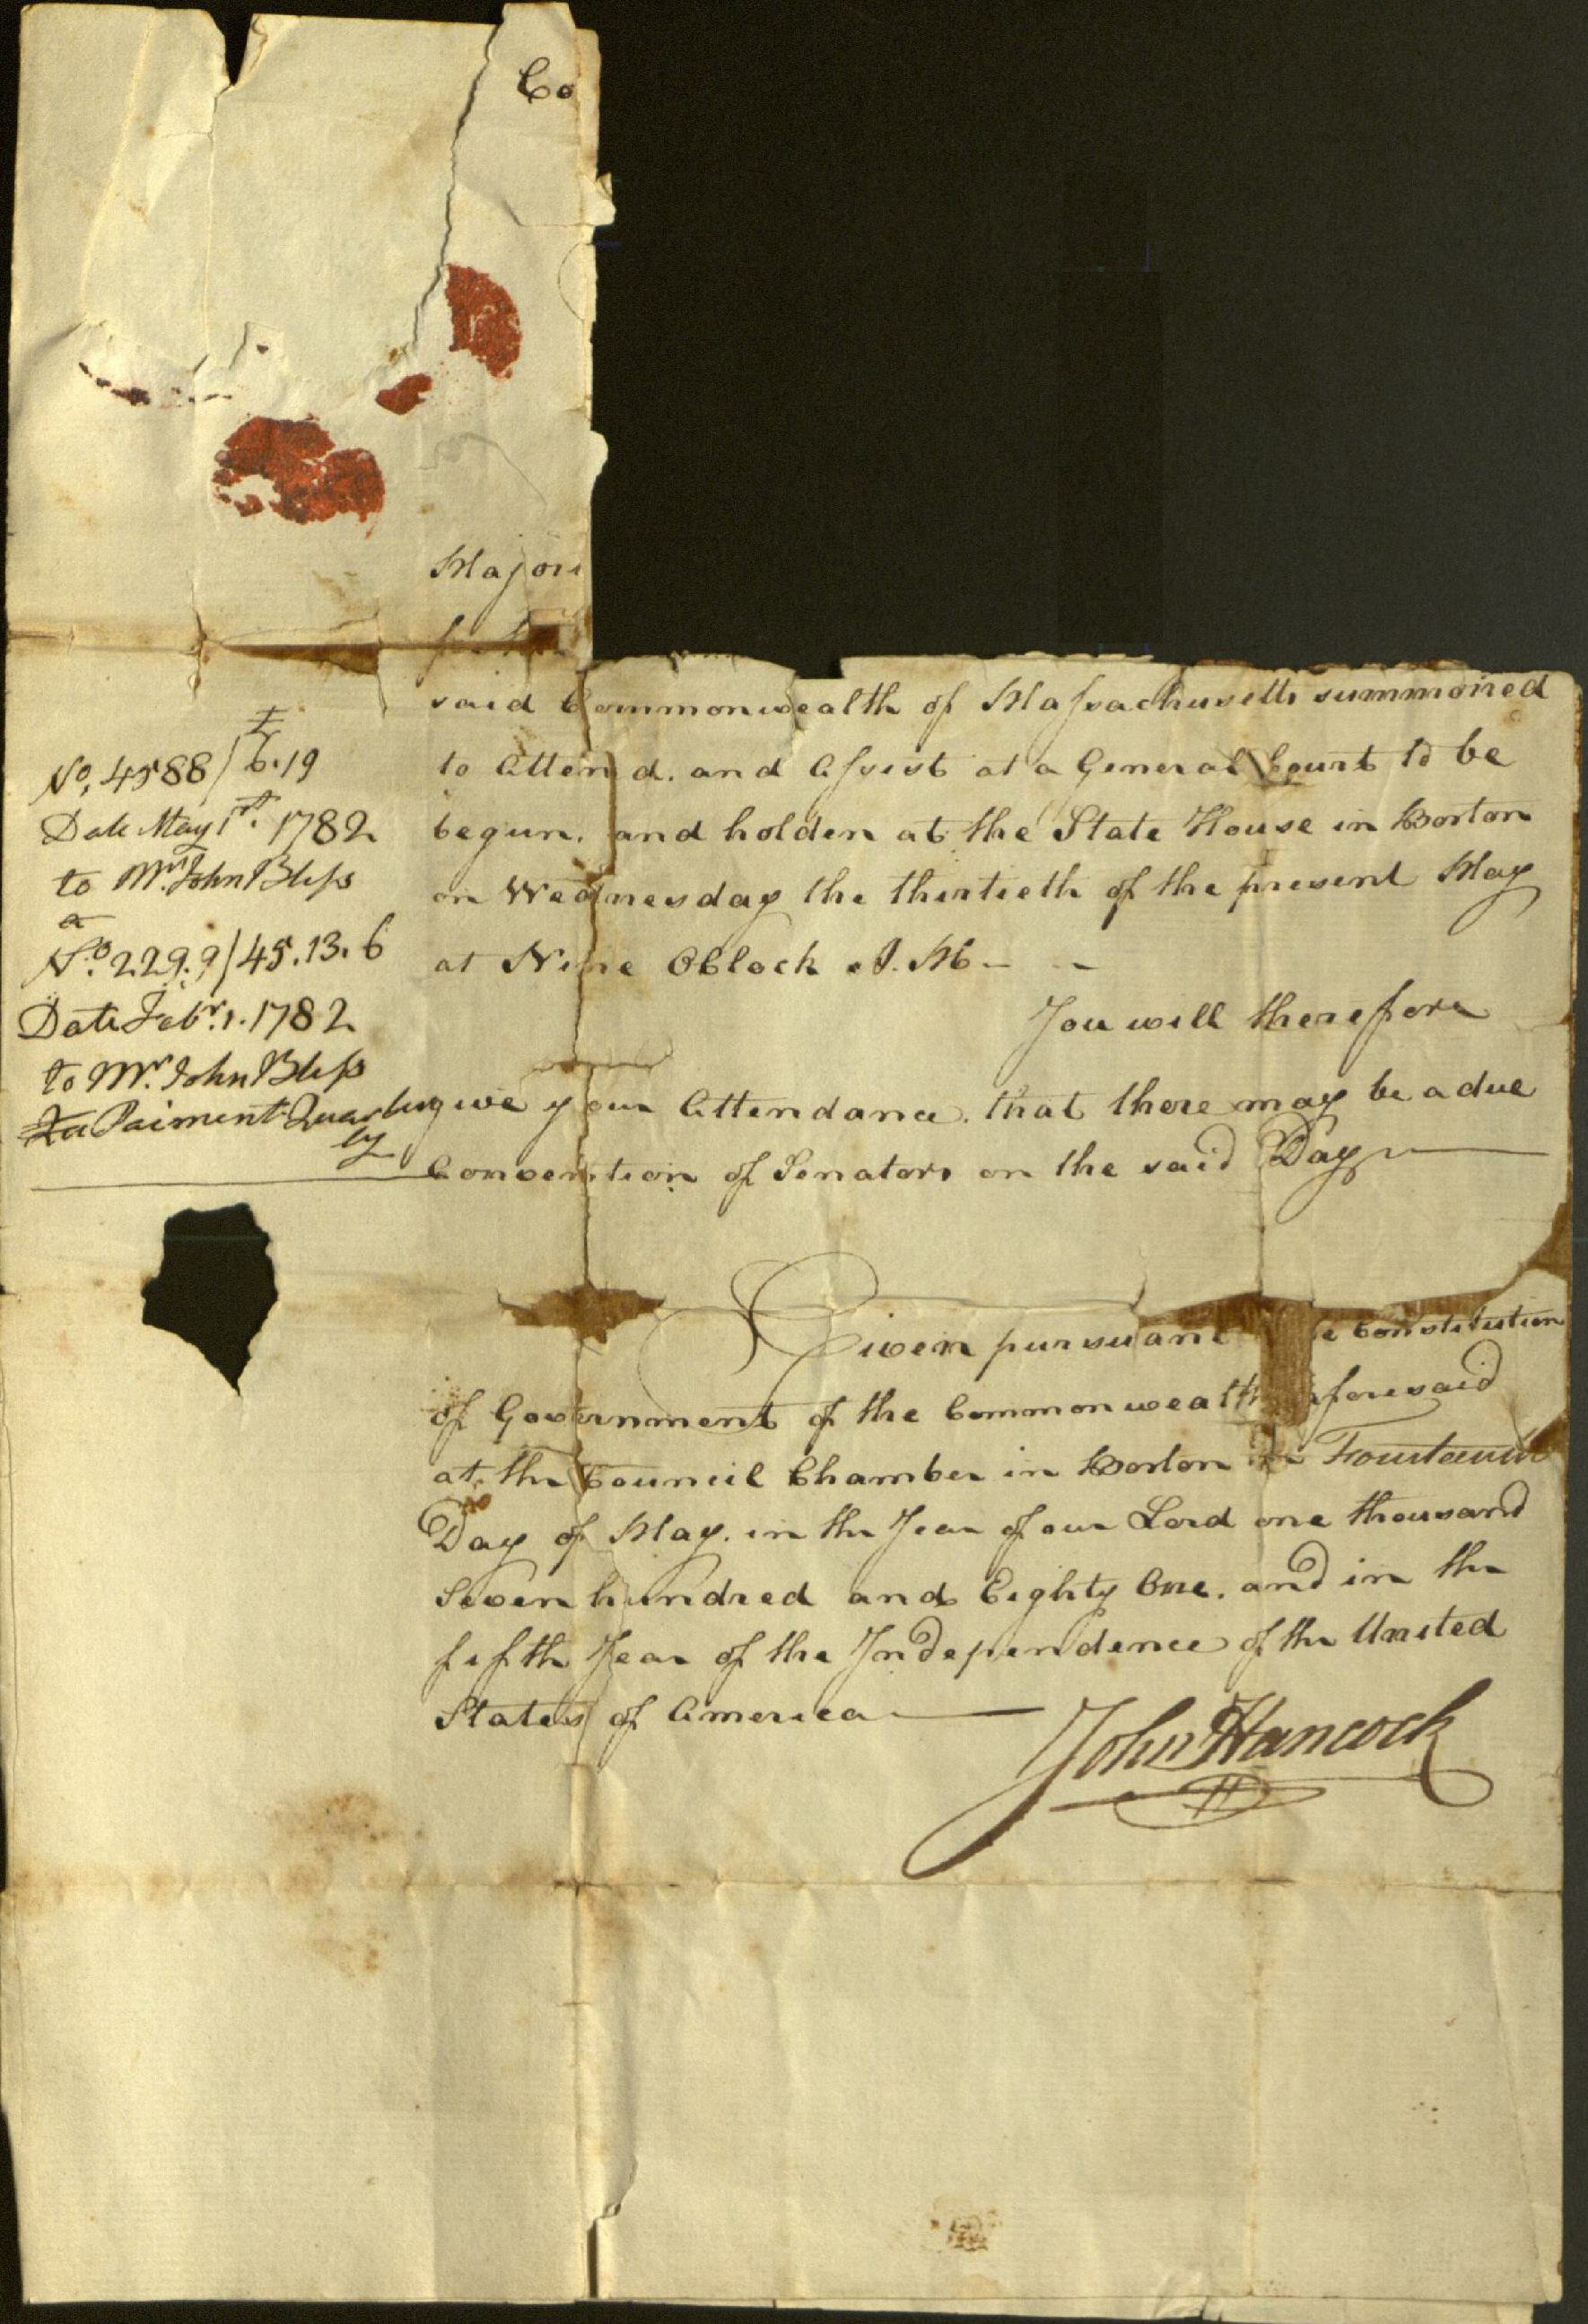 Co
Majori
said Commonwealth of Massachusetts summoned
to Attend. and Assist at a General Court to be
begun. and holden at the State House in Boston
on Wednesday the thirtieth of the present May
at Nine OClock A. M - -
You will therefore
give your Attendance. that there may be a due
Convention of Senators on the said Day
Given pursuant e Constitution
of Government of the Commonwealth aforesaid
at the Council Chamber in Boston Fourteenth
Day of May. in the Year of our Lord one thousand
Seven hundred and Eighty One. and in the
fifth Year of the Independence of the United
States of America
John Hancock
No. 4588/6.19
Date May 1st. 1782
to Mr. John Bliss
a
No. 229.9/45.13.6
Date Febr. 1. 1782
to Mr. John Bliss
Paiment Quarter
ly